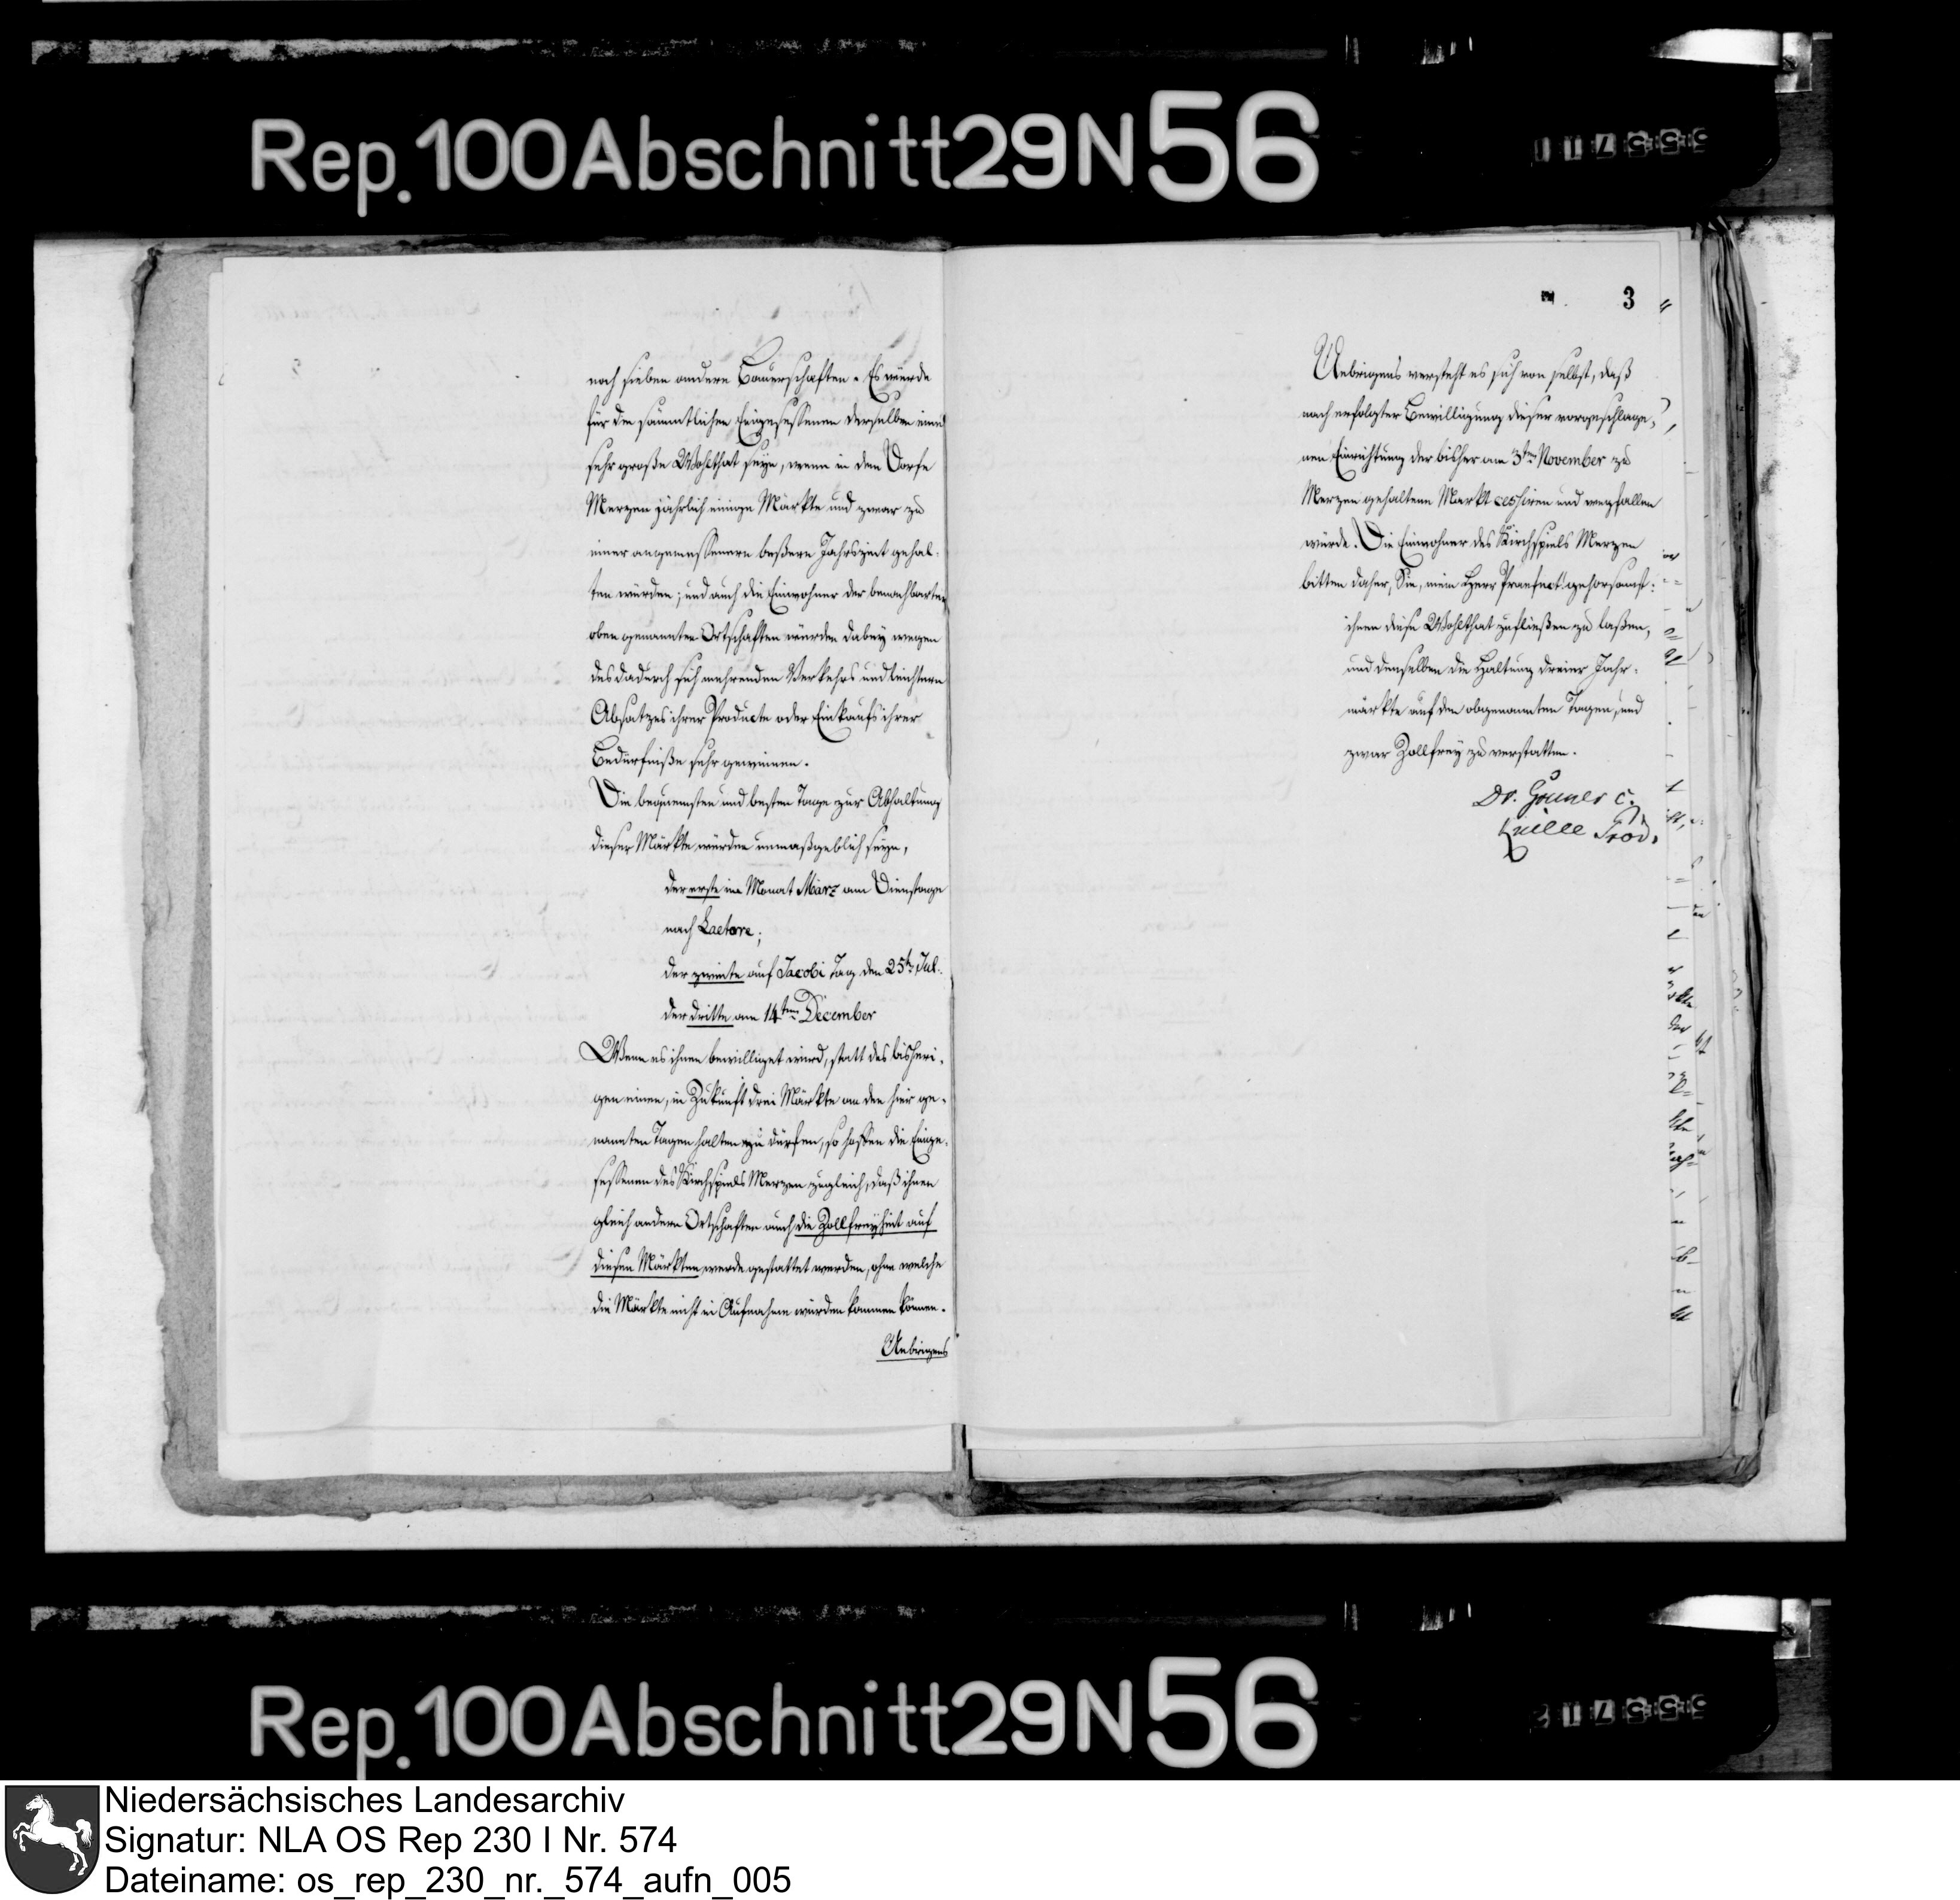 Rep. 100 Abschnitt 29 N 56
noch sieben andere Bauerschaften. Es würde
für die sämmtlichen Eingesessenen derselben eine
sehr große Wohlthat seyn, wenn in dem Dorfe
Merzen jährlich einige Märkte und zwar zu
einer angemessenern beßern Jahrszeit gehal-
ten würden; und auch die Einwohner der benachbarten
oben genannten Ortschaften würden dabey wegen
des dadurch sich mehrenden Verkehrs und leichtern
Absatzes ihrer Producte oder Einkaufs ihrer
Bedürfniße sehr gewinnen.
Die bequemsten und besten Tage zur Abhaltung
dieser Märkte würden unmaßgeblich seyn,
der erste im Monat März am Dienstage
nach Laetare;
der zweite auf Jacobi Tag den 25t. Jul.
der dritte am 14ten December
Wenn es ihnen bewilliget wird, statt des bisheri-
gen einen, in Zukunft drei Märkte an den hier ge-
nannten Tagen halten zu dürfen, so hoffen die Einge-
sessenen des Kirchspiels Merzen zugleich, daß ihnen
gleich andern Ortschaften auch die Zollfreyheit auf
diesen Märkten werde gestattet werden, ohne welche
die Märkte nicht in Aufnahme würden kommen können.
Uebrigens
3
Uebrigens versteht es sich von selbst, daß
nach erfolgter Bewilligung dieser vorgeschlage-
nen Einrichtung der bisher am 3ten November zu
Merzen gehaltene Markt cessiren und wegfallen
würde. Die Einwohner des Kirchspiels Merzen
bitten daher, Sie, mein Herr Praefect! gehorsamst:
ihnen diese Wohlthat zufließen zu laßen,
und denselben die Haltung dreier Jahr-
märkte auf den obgenannten Tagen, und
zwar Zollfrey zu verstatten.
Dr.
Rep. 100 Abschnitt 29 N 56
Niedersächsisches Landesarchiv
Signatur: NLA OS Rep 230 I Nr. 574
Dateiname: os_rep_230_nr._574_aufn_005